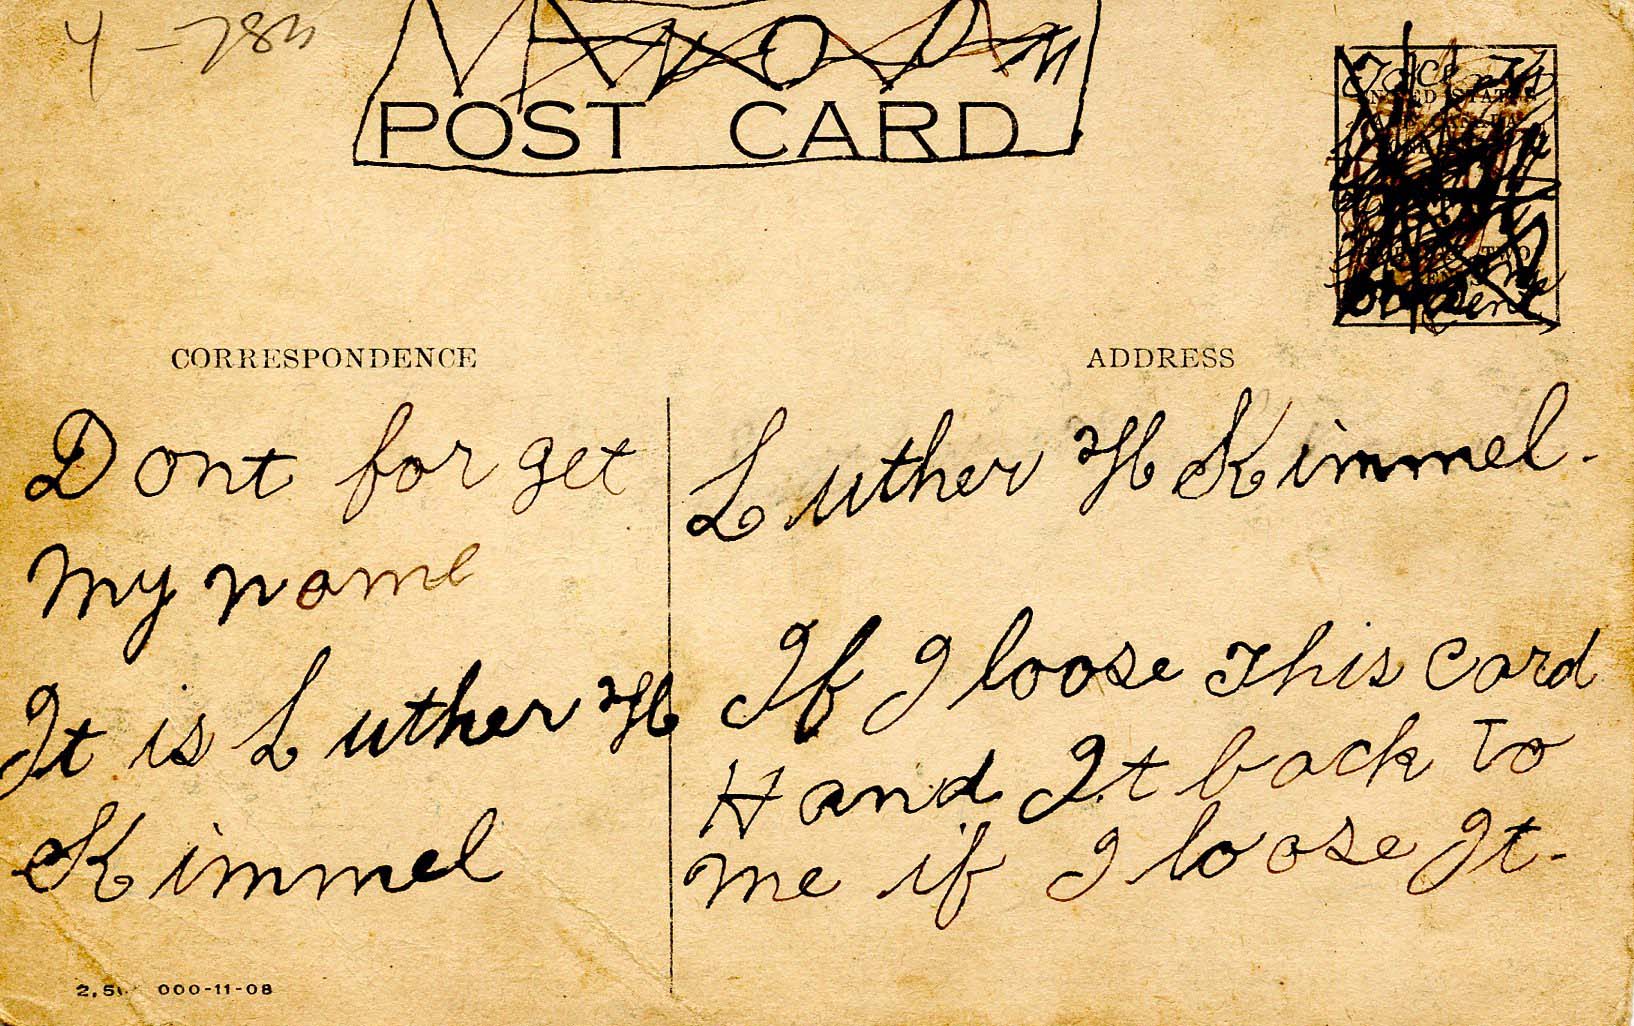 POST CARD
CORRESPONDENCE
ADDRESS
Dont for get
my name
It is Luther H
Kimmel
Luther H Kimmel.
If I loose This Card
Hand It back To
me if I loose It.
000-11-08